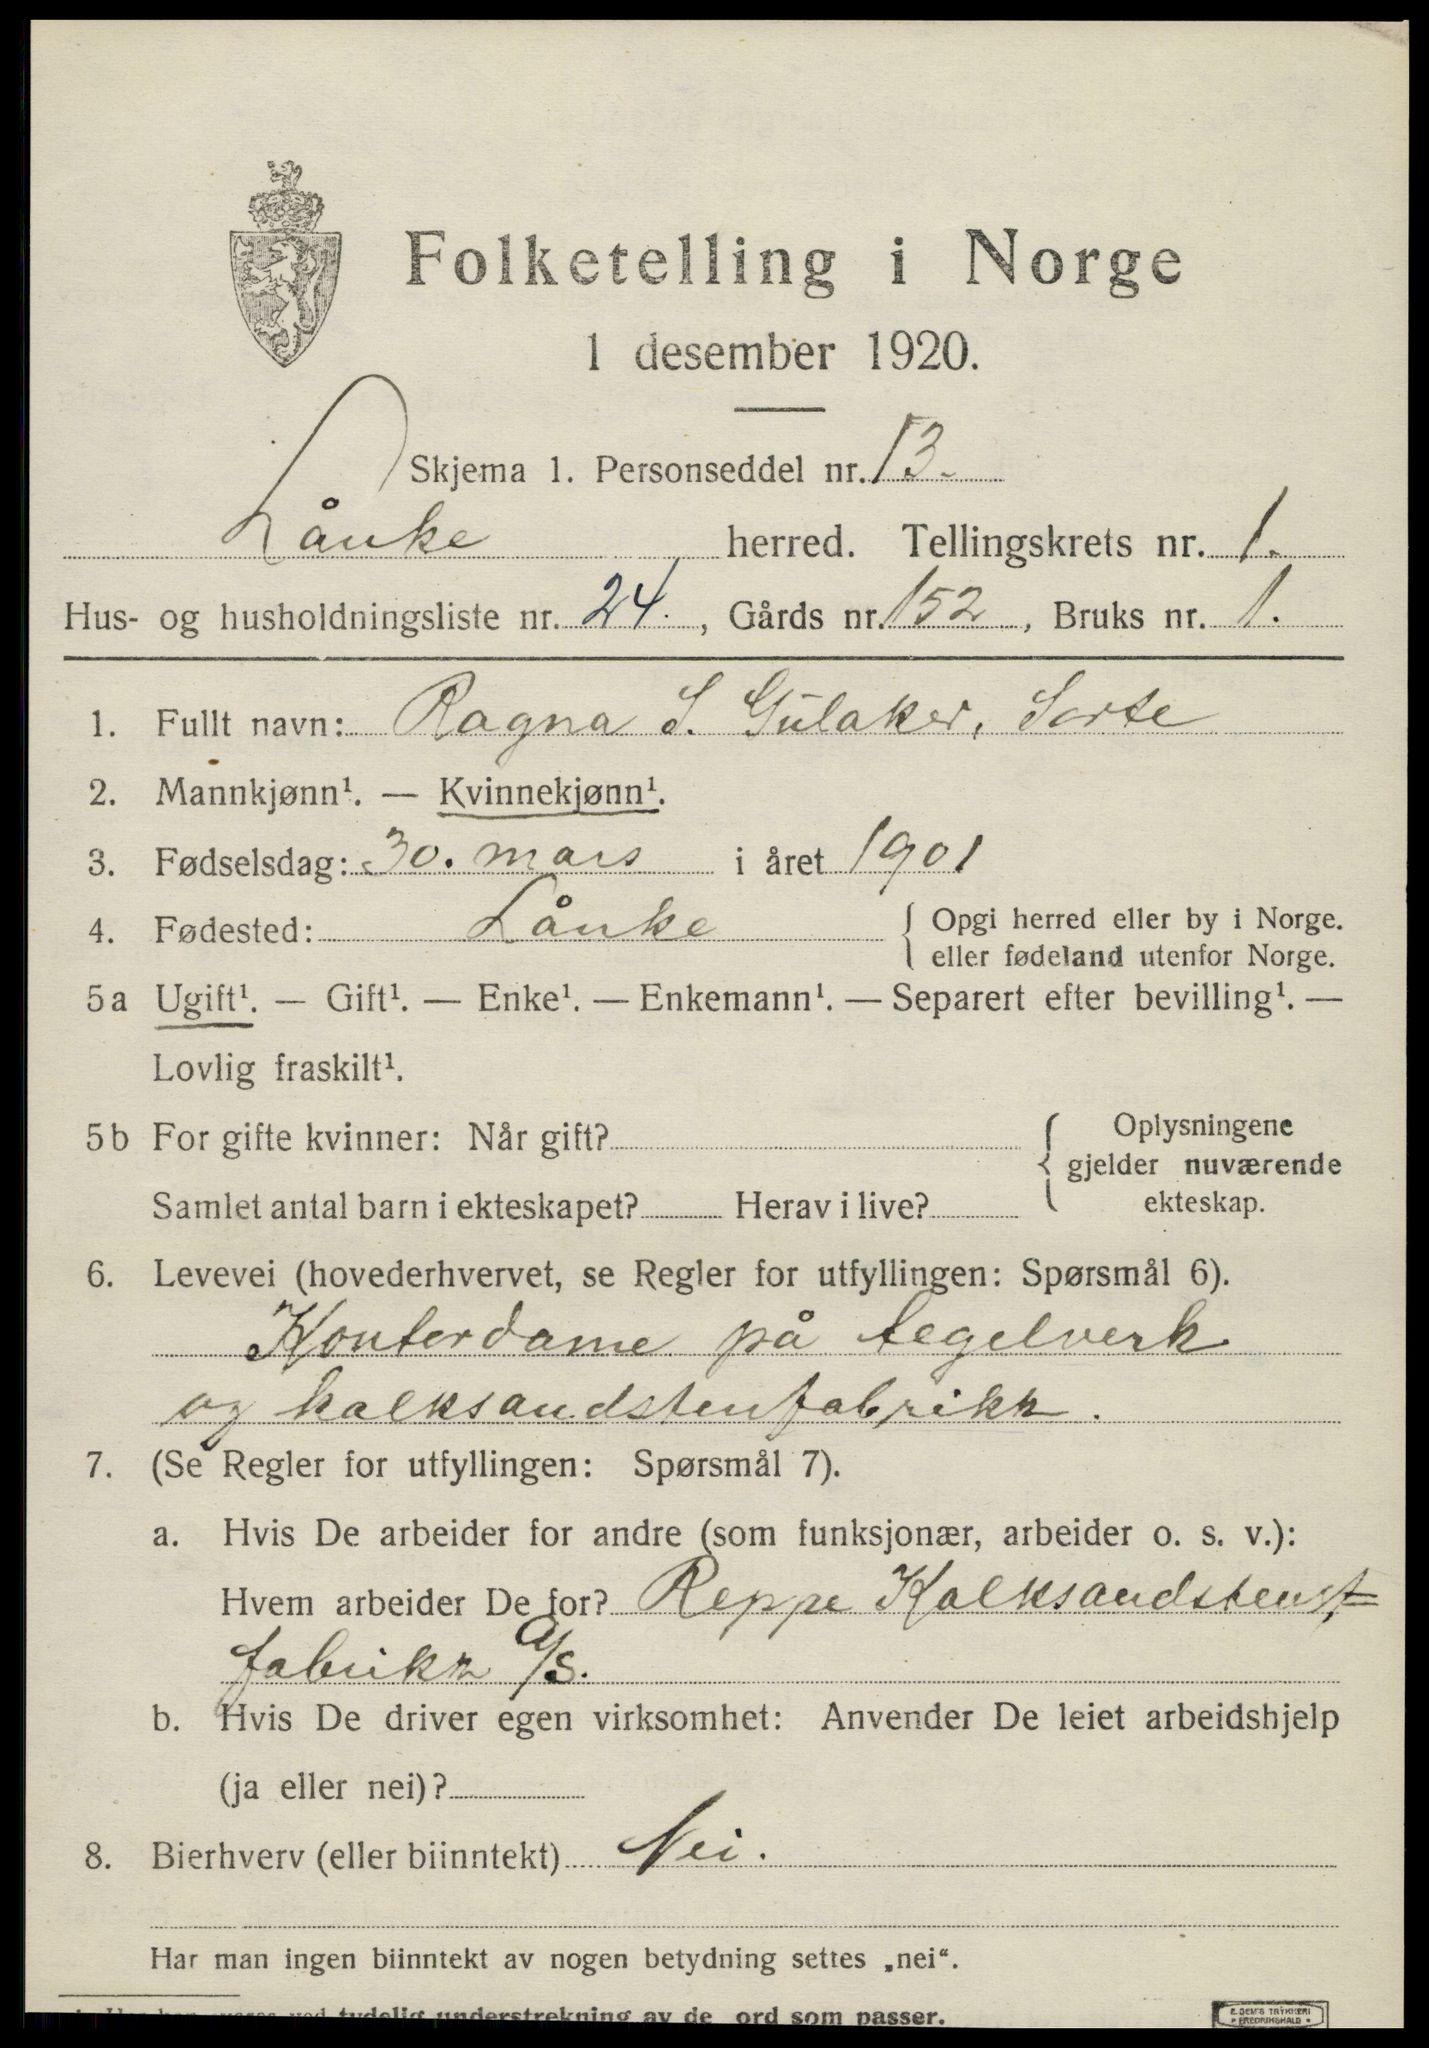 Folketelling i Norge
1 desember 1920.
Skjema 1. Personseddel nr. 13.
Lånke herred. Tellingskrets nr. 1.
Hus- og husholdningsliste nr. 24., Gårds nr. 152, Bruks nr. 1.
1. Fullt navn: Ragna S. Gulaker, Sorte
2. Mannkjønn¹. — Kvinnekjønn¹.
3. Fødselsdag: 30. mars i året 1901
4. Fødested: Lånke { Opgi herred eller by i Norge.
eller fødeland utenfor Norge.
5a Ugift¹. — Gift¹. — Enke¹. — Enkemann¹. — Separert efter bevilling¹. —
Lovlig fraskilt¹.
5b For gifte kvinner: Når gift?
Samlet antal barn i ekteskapet? Herav i live?
{ Oplysningene
gjelder nuværende
ekteskap.
6. Levevei (hovederhvervet, se Regler for utfyllingen: Spørsmål 6).
Kontordame på tegelverk
og kalksandstenfabrikk.
7. (Se Regler for utfyllingen: Spørsmål 7).
a. Hvis De arbeider for andre (som funksjonær, arbeider o. s. v.):
Hvem arbeider De for? Reppe Kalksandstens
fabrikk A/S.
b. Hvis De driver egen virksomhet: Anvender De leiet arbeidshjelp
(ja eller nei)?
8. Bierhverv (eller biinntekt) Nei.
Har man ingen biinntekt av nogen betydning settes „nei“.
tydelig understrekning av de ord som passer.
E. SEM'S TRYKKERI
FREDRIKSHALD